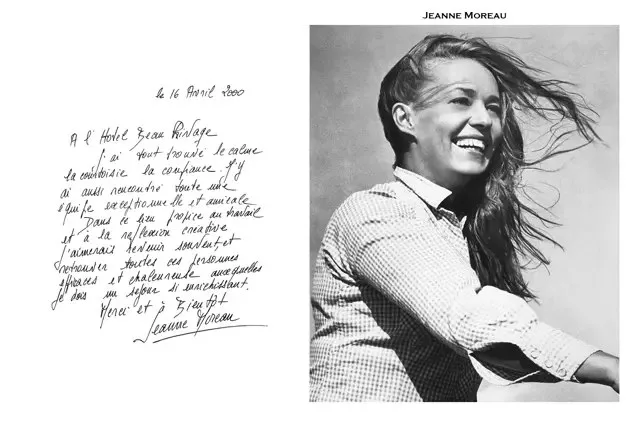 Jeanne Moreau
le 16 Avril 2000
A l'Hotel Beau Rivage
J'ai tout trouvé le calme
la courtoisie la confiance. J'y
ai aussi rencontré toute une
équipe exceptionnelle et amicale
Dans ce lieu propice au travail
et à la reflexion creative
j'aimerais revenir souvent et
retrouver toutes ces personnes
efficaces et chaleureuse auxquelles
je dois un sejour si enrichissant.
Merci et à Bientôt
Jeanne Moreau